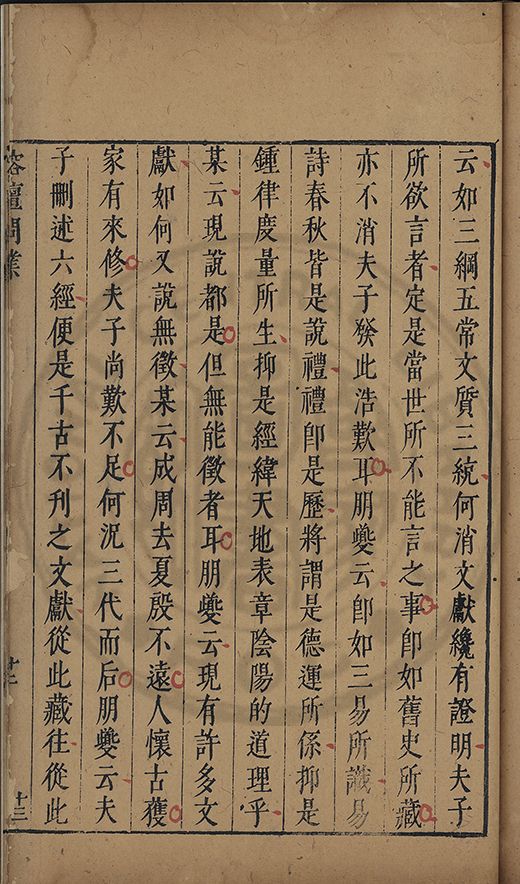 云如三綱五常文質三統何消文獻纔有證明夫子
所欲言者定是當世所不能言之事卽如舊史所藏
亦不消夫子發此浩歎耳朋夔云卽如三易所識易
詩春秋皆是說禮禮卽是歷將謂是德運所係抑是
鍾律度量所生抑是經緯天地表章陰陽的道理乎
某云現說都是但無能徵者耳朋夔云現有許多文
獻如何又說無徵某云成周去夏殷不遠人懷古獲
家有來修夫子尚歎不足何況三代而后朋夔云夫
子刪述六經便是千古不刊之文獻從此藏往從此
榕壇問業
十二
十三